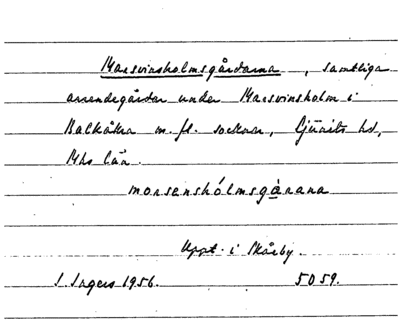 Marsvinsholmsgårdarna, samtliga
arrendegårdar under Marsvinsholm i
Balkåkra m. fl. socknar, Ljunits hd,
Mhs län.
monsenshólmsgạ̊rana
Uppt. i Skårby.
S. Ingers 1956. 5059.